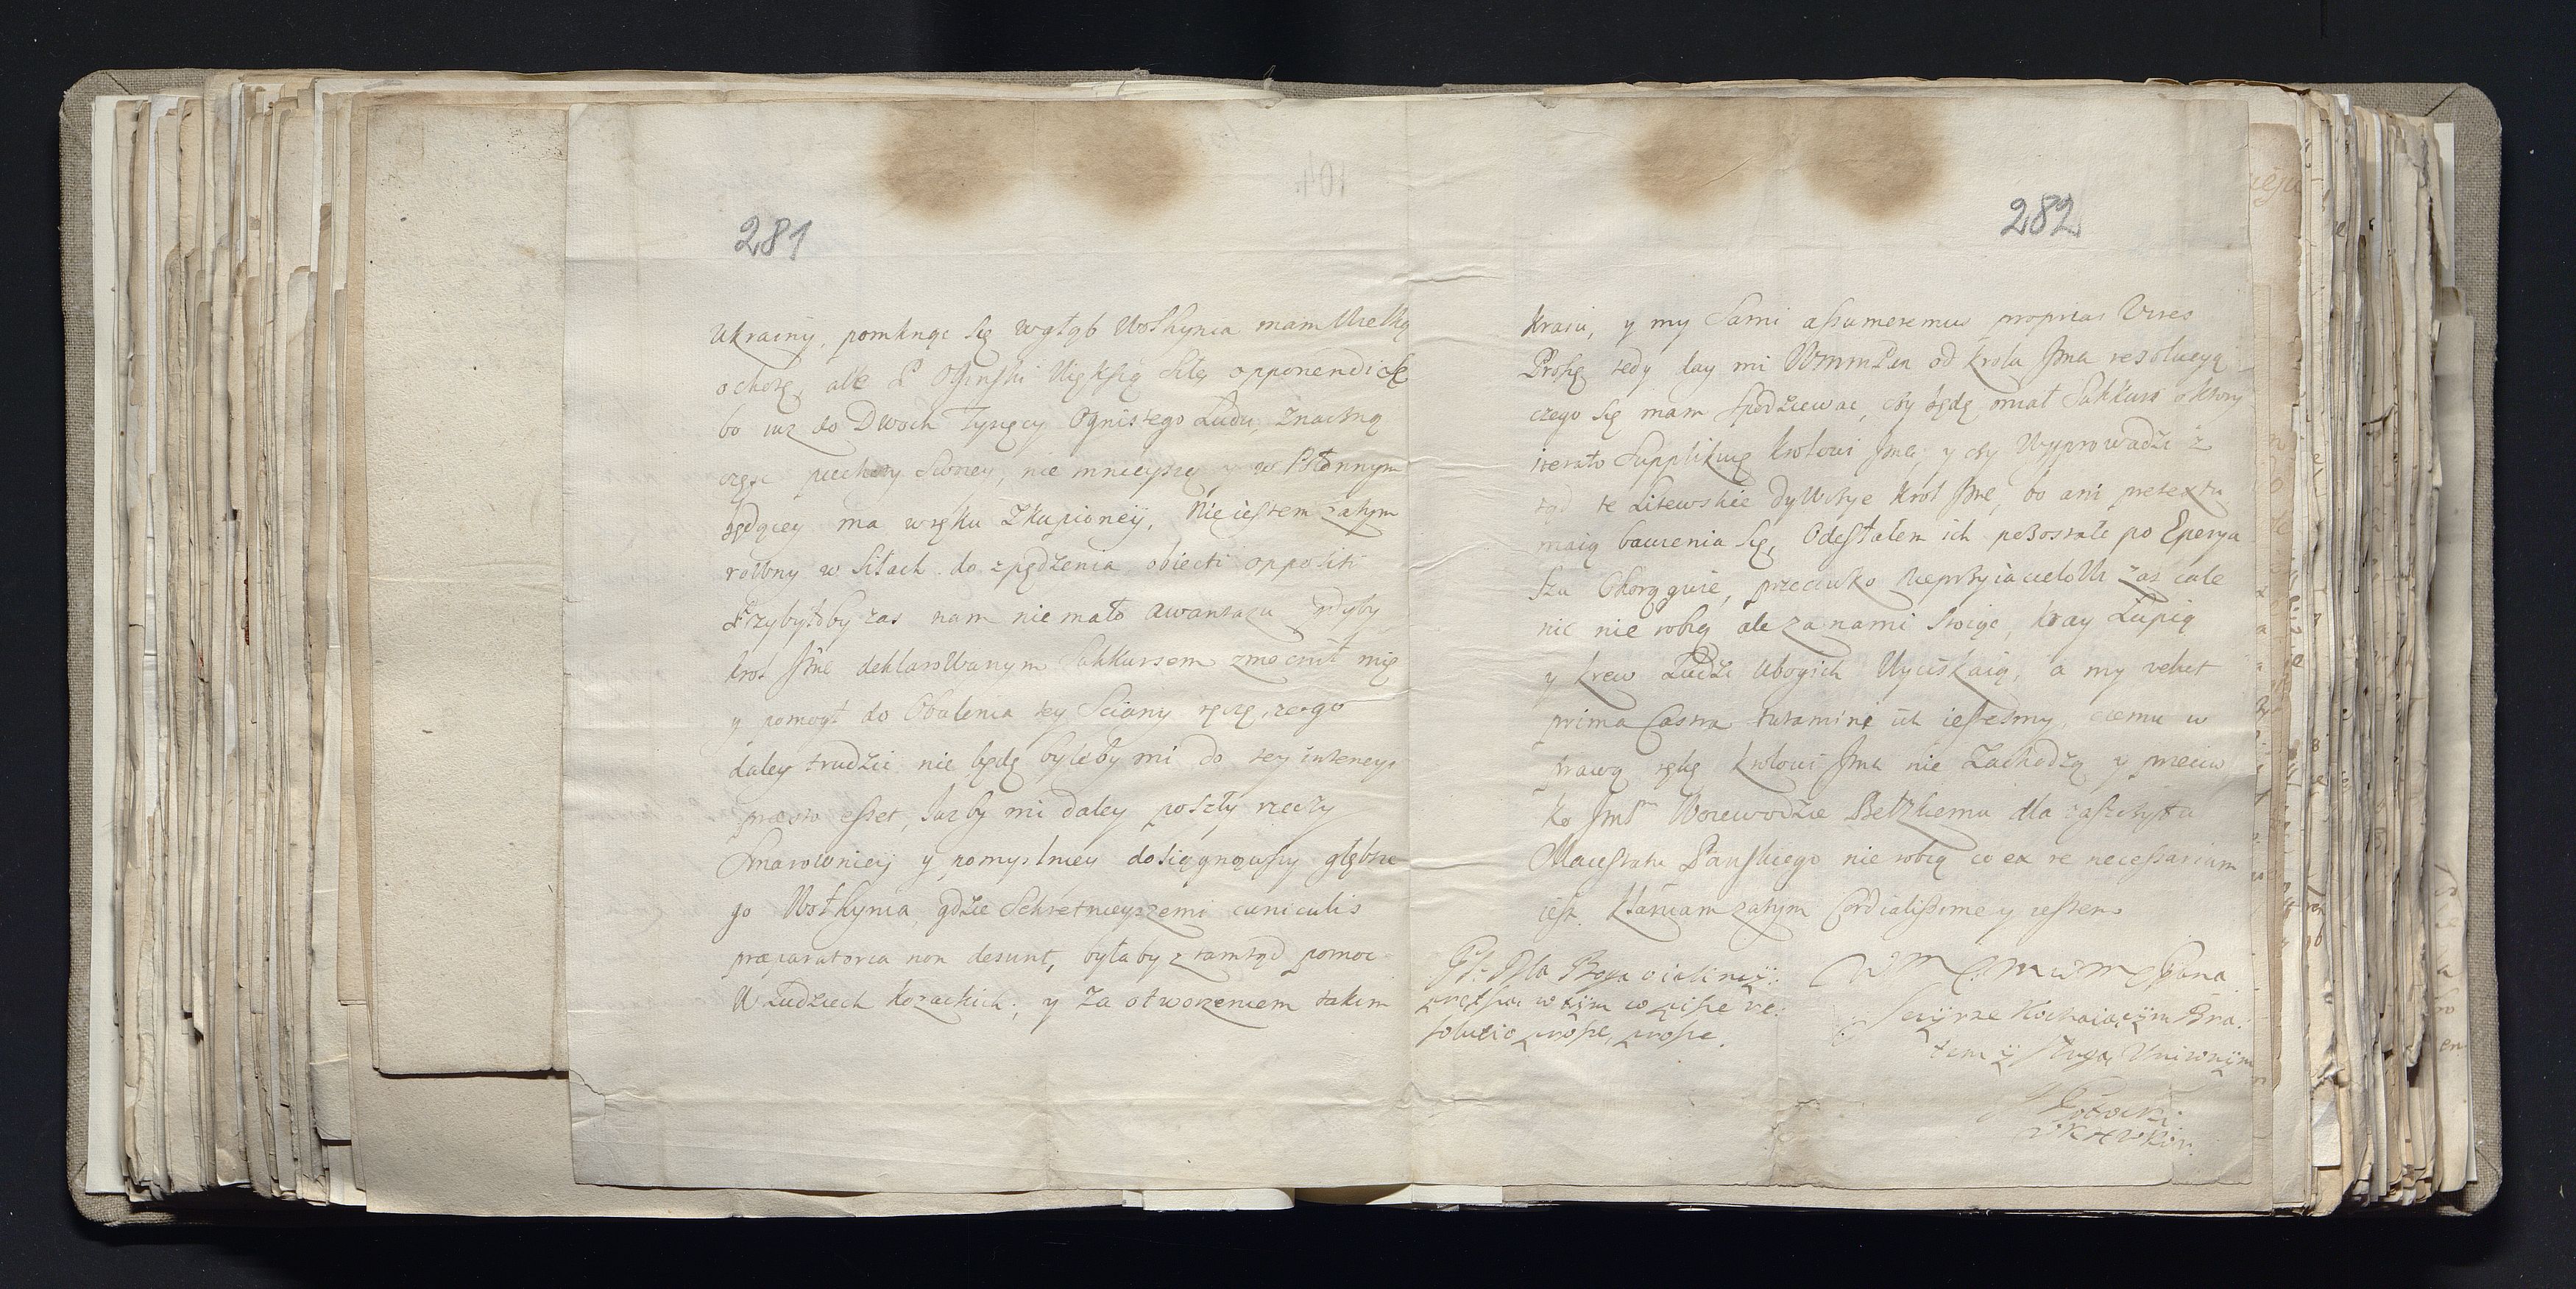 281
Ukrainy, pomknąc się wgłąb Wołhynia mam Wielką
ochotę, ale P Oginski Większą Siłę opponendi
bo iuz do Dwoch Tysięcy Ognistego Ludu, znaczną
częsc piechoty Swoiey, nie mnieyszą y w Połonnym
będącey ma w ręku Zkupioneij. Nie iestem zatym
rowny w Siłach do zpędzenia obiecti oppositi
Przybyłoby zas nam nie mało awantazu gdyby
Krol Jme deklarowanym Sukkursem zmocnił mię
y pomogł do Obalenia tey Sciany ręczę, ze go
daley trudzic nie będę byleby mi do tey intencyi
esset, Juz by mi daley poszły rzeczy
Smarowniey y pomyslniey dosiągnąwszy głębsze
go Wołhynia, gdzie Sekretnieyszemi cuniculis
præparatoria non desunt, byłaby z tamtąd pomoc
W Ludziech Kozackich; y za otworzeniem takim
282
Kraiu, y my Sami assumeremus proprias Vires
Proszę tedy day mi WmmPan od Krola Jma resolucyą
czego się mam spodziewac, czy będę miał Sukkurs o ktory
iterato Supplikuię Krolowi Jme, y czy Wyprowadzi z
tąd te Litewskie Dywizye Krol Jme, bo ani pretextu
maią bawienia się, Odesłałem ich pozostałe po Eperya
szu Chorągwie, przeciwko Nieprzyiacielowi zas cale
nic nie robią ale za nami stoiąc, Kray Łupią
y krew Ludzi Ubogich Wyciskaią, a my velut
prima Castra tutamine ich iestesmy, czemu w
prawą rękę Krolowi Jme nie Zachodzą y przeciw
ko Jmsc Woiewodzie Bełzkiemu dla zaszczytu
Maiestatu Panskiego nie robią co ex re necessarium
iest. Kłaniam zatym Cordialissime y iestem
Pana
Szczyrze Kochaiącym Bra:
tem y sługą Uniżonym
J Potocki
PS: Dla Boga
w tym co piszę re:
solucio proszę, proszę.
104